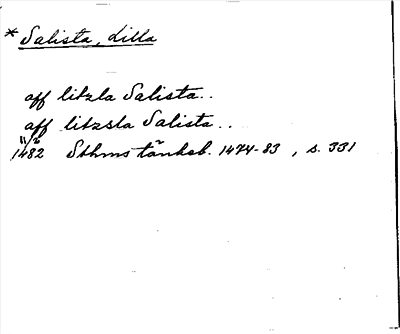 * Salista, Lilla
aff litzla Salista..
aff litzsla Salista..
11/6
1482 Sthms tänkeb. 1474-83, s. 331